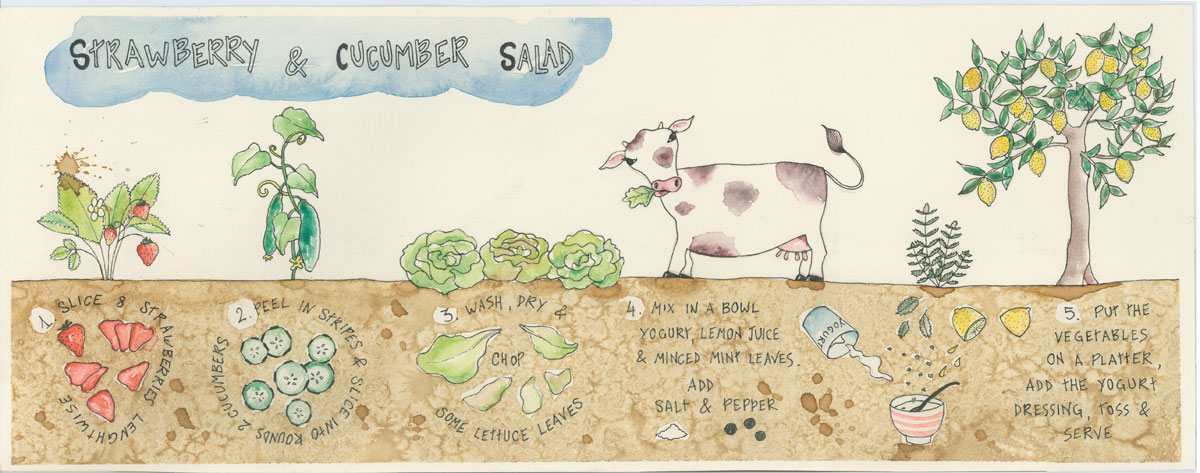 STRAWBERRY & CUCUMBER SALAD
1. SLICE 8 STRAWBERRIES LENGHTWISE
2. PEEL IN STRIPES & SLICE INTO ROUNDS 2 CUCUMBERS
3. WASH, DRY &
CHOP
SOME LETTUCE LEAVES
4. MIX IN A BOWL
YOGURT, LEMON JUICE
& MINCED MINT LEAVES.
ADD
SALT & PEPPER
YOGURT
5. PUT THE
VEGETABLES
ON A PLATTER,
ADD THE YOGURT
DRESSING, TOSS &
SERVE